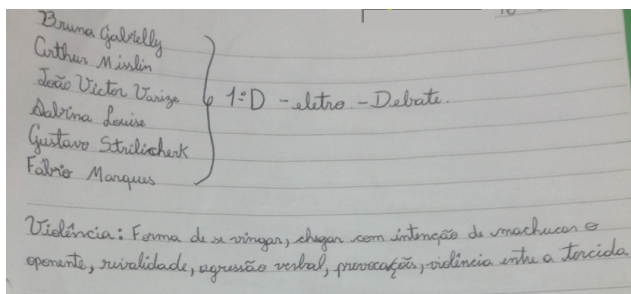 Bruna Gabrielly
Arthur Misslin
João Victor Varize
Sabrina Louise
Gustavo Strilicherk
Fabrio Marques
1ºD - eletro - Debate.
Violência: Forma de se vingar, chegar com intenção de machucar o
oponente, rivalidade, agressão verbal, provocações, violência entre a torcida